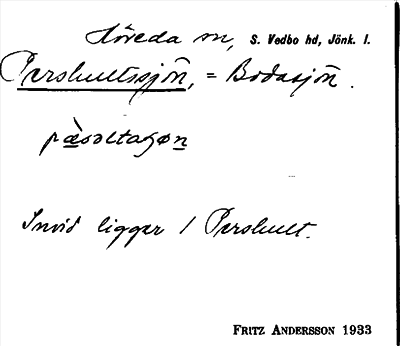 Höreda sn, S. Vedbo hd, Jönk. l.
Pershultssjön, = Bodasjön.
pæ̀səltaʒøn
Invid ligger 1 Pershult.
FRITZ ANDERSSON 1933